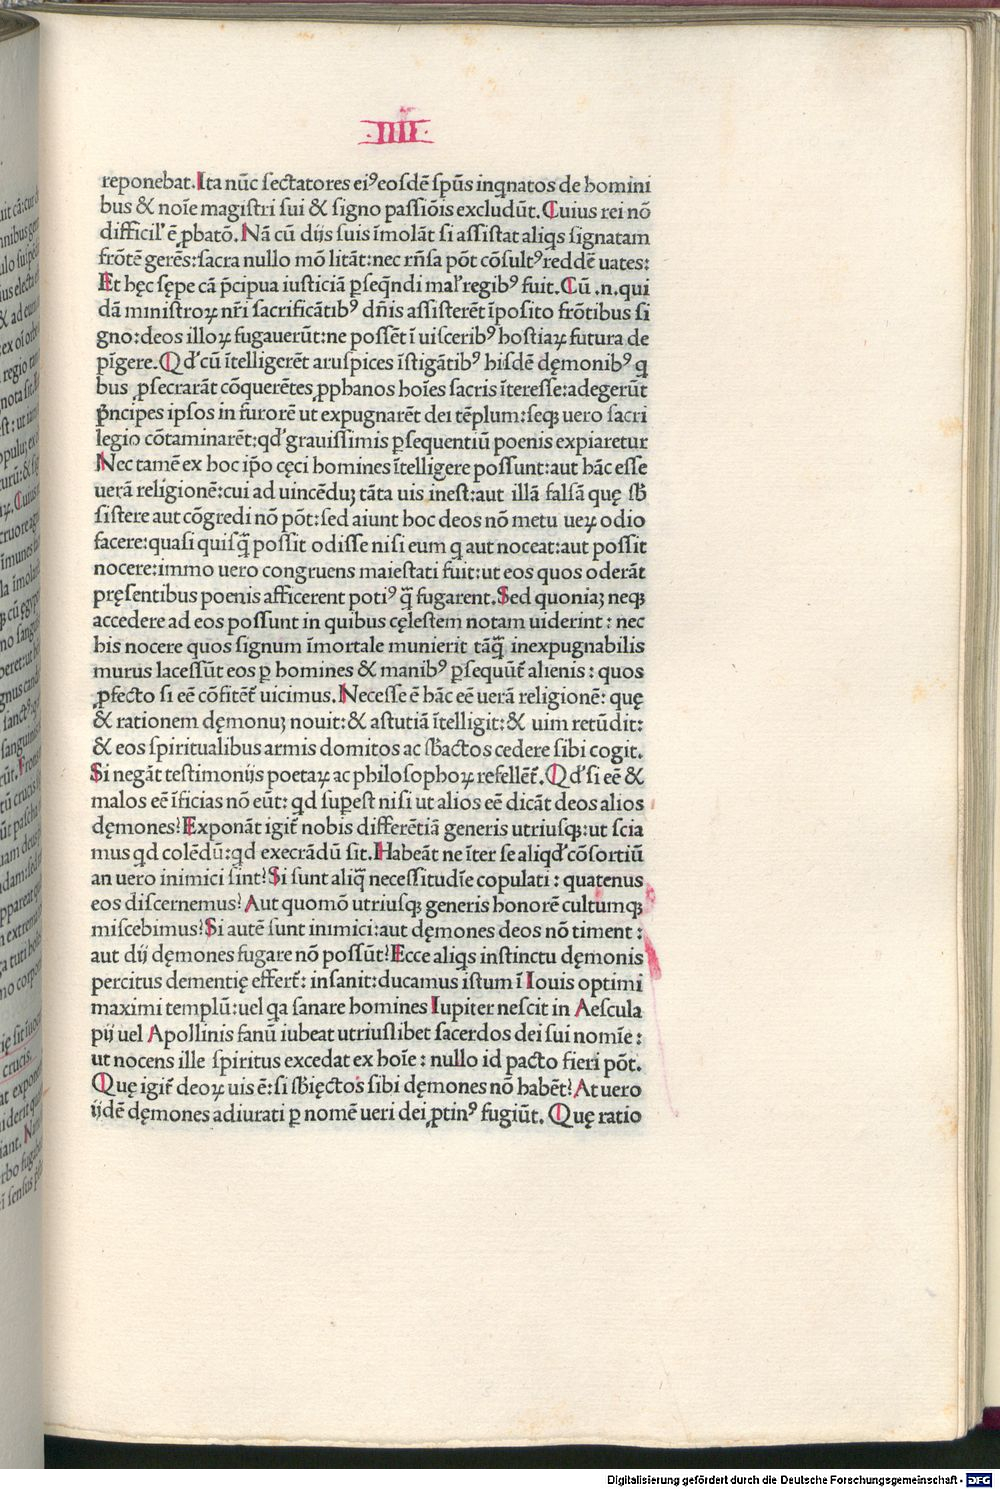 ·IIII·
reponebat.Ita nūc sectatores eiꝰ eosdē spūs inqnatos de homini
bus & noīe magistri sui & signo passiōis excludūt.Cuius rei nō
difficil' ē ꝓbatō.Nā cū dijs suis īmolāt si assistat aliqs signatam
frōtē gerēs:sacra nullo mō litāt:nec rn̄sa pōt cōsultꝰ reddē uates:
Et hęc sępe cā p̄cipua iusticiā ꝑseq̄ndi mal' regibꝰ fuit.Cū .n.qui
dā ministroꝝ nr̄i sacrificātibꝰ dn̄is assisterēt īposito frōtibus si
gno:deos illoꝝ fugauerūt:ne possēt ī uisceribꝰ hostiaꝝ futura de
pīgere.Qd' cū ītelligerēt aruspices īstigātibꝰ hisdē dęmonibꝰ q
bus ꝓsecrarāt cōquerētes ꝓphanos hoīes sacris īteresse:adegerūt
p̄ncipes ipsos in furorē ut expugnarēt dei tēplum:seqꝫ uero sacri
legio cōtaminarēt:qd' grauissimis ꝑsequentiū poenis expiaretur
Nec tamē ex hoc ip̄o cęci homines ītelligere possunt:aut hāc esse
uerā religionē:cui ad uincēduꝫ tāta uis inest:aut illā falsā quę sb̄
sistere aut cōgredi nō pōt:sed aiunt hoc deos nō metu ueꝝ odio
facere:quasi quisq̄ possit odisse nisi eum q aut noceat:aut possit
nocere:immo uero congruens maiestati fuit:ut eos quos oderāt
pręsentibus poenis afficerent potiꝰ q̄ fugarent.Sed quoniaꝫ neqꝫ
accedere ad eos possunt in quibus cęlestem notam uiderint : nec
his nocere quos signum īmortale munierit tāq̄ inexpugnabilis
murus lacessūt eos ꝑ homines & manibꝰ ꝑsequūt̄ alienis : quos
ꝓfecto si eē cōfitēt̄ uicimus.Necesse ē hāc eē uerā religionē: quę
& rationem dęmonuꝫ nouit:& astutiā ītelligit:& uim retūdit:
& eos spiritualibus armis domitos ac sb̄actos cedere sibi cogit.
Si negāt testimonijs poetaꝝ ac philosophoꝝ refellēt̄.Qd' si eē &
malos eē īficias nō eūt: qd suꝑest nisi ut alios eē dicāt deos alios
dęmones?Exponāt igit̄ nobis differētiā generis utriusqꝫ:ut scia
mus qd colēdū:qd execrādū sit.Habeāt ne īter se aliqd' cōsortiū
an uero inimici sint?Si sunt aliq̄ necessitudīe copulati : quatenus
eos discernemus? Aut quomō utriusqꝫ generis honorē cultumqꝫ
miscebimus?Si autē sunt inimici:aut dęmones deos nō timent :
aut dij dęmones fugare nō possūt?Ecce aliqs instinctu dęmonis
percitus dementię effert̄: insanit:ducamus istum ī Iouis optimi
maximi templū:uel qa sanare homines Iupiter nescit in Aescula
pij uel Apollinis fanū iubeat utriuslibet sacerdos dei sui nomīe :
ut nocens ille spiritus excedat ex hoīe : nullo id pacto fieri pōt.
Quę igit̄ deoꝝ uis ē: si sb̄ięctos sibi dęmones nō habēt?At uero
ijdē dęmones adiurati ꝑ nomē ueri dei ꝓtinꝰ fugiūt. Quę ratio
Digitalisierung gefördert durch die Deutsche Forschungsgemeinschaft - DFG